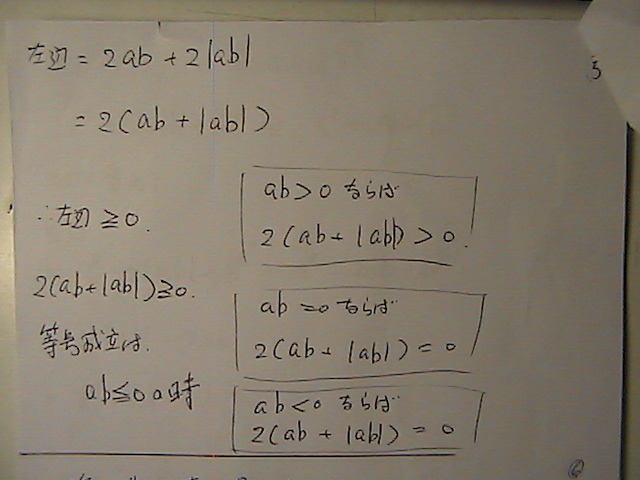 左辺 = 2ab + 2|ab|
= 2(ab + |ab|)
∴左辺 ≧ 0.
2(ab + |ab|) ≧ 0.
等号成立は.
ab ≦ 0 の時
ab > 0 ならば
2(ab + |ab|) > 0.
ab = 0 ならば
2(ab + |ab|) = 0
ab < 0 ならば
2(ab + |ab|) = 0